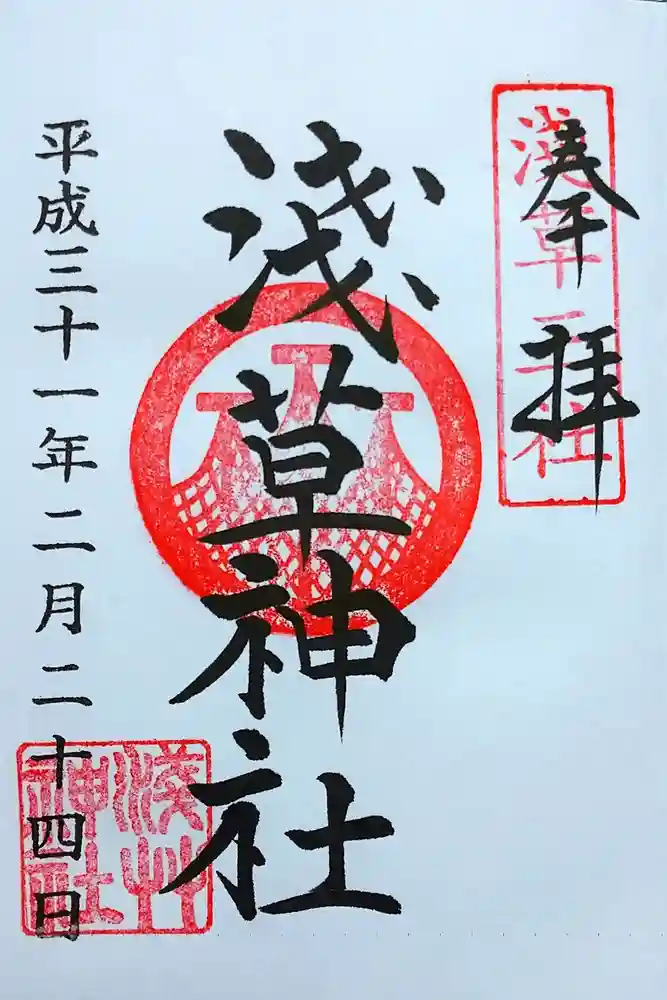 奉拝
淺草三社
淺草神社
平成三十一年二月二十四日
淺艸神社